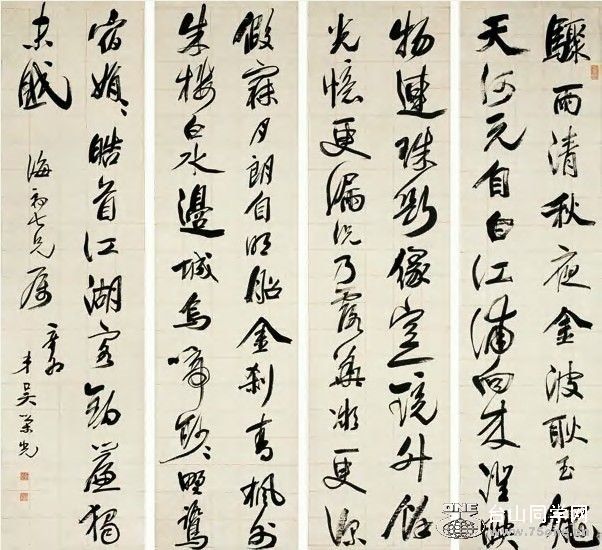 驟雨清秋夜金波耿玉繩
天河元自白江浦向来澄映
物連珠斷緣空一鏡升餘
光憶更漏況乃露華凝更深
假寐月朗自明船金刹青楓外
朱樓白水邊城烏啼眇〻野鷺
宿娟〻皓首江湖客鉤簾獨
未眠
七兄屬
弟吴榮光
台山同学网